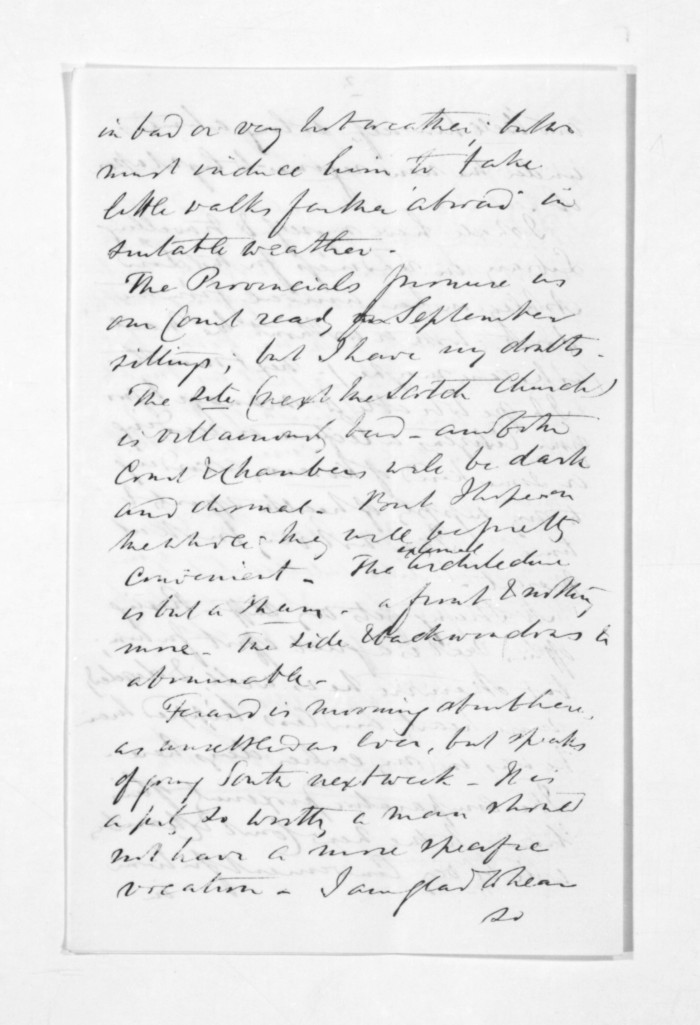 in bad or very hot weather; but we
must induce him to take
little walks farther 'abroad' in
suitable weather.
The Provincials promise us
our Court ready for September
sittings; but I have my doubts.
The site (next the Scotch Church)
is villainously bad - and both
Court & Chambers will be dark
and dismal. But I hope on
the whole they will be pretty
convenient - The external architecture
is but a sham - a front & nothing
more. The side & back windows is
abominable.
is mooning about here,
as unsettled as ever, but speaks
of going South next week - It is
a pity so worthy a man should
not have a more specific
vocation - I am glad to hear
so